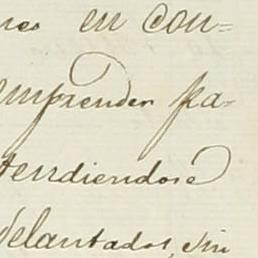 res en con=
emprender pa-
tendiendose
delantados, sin